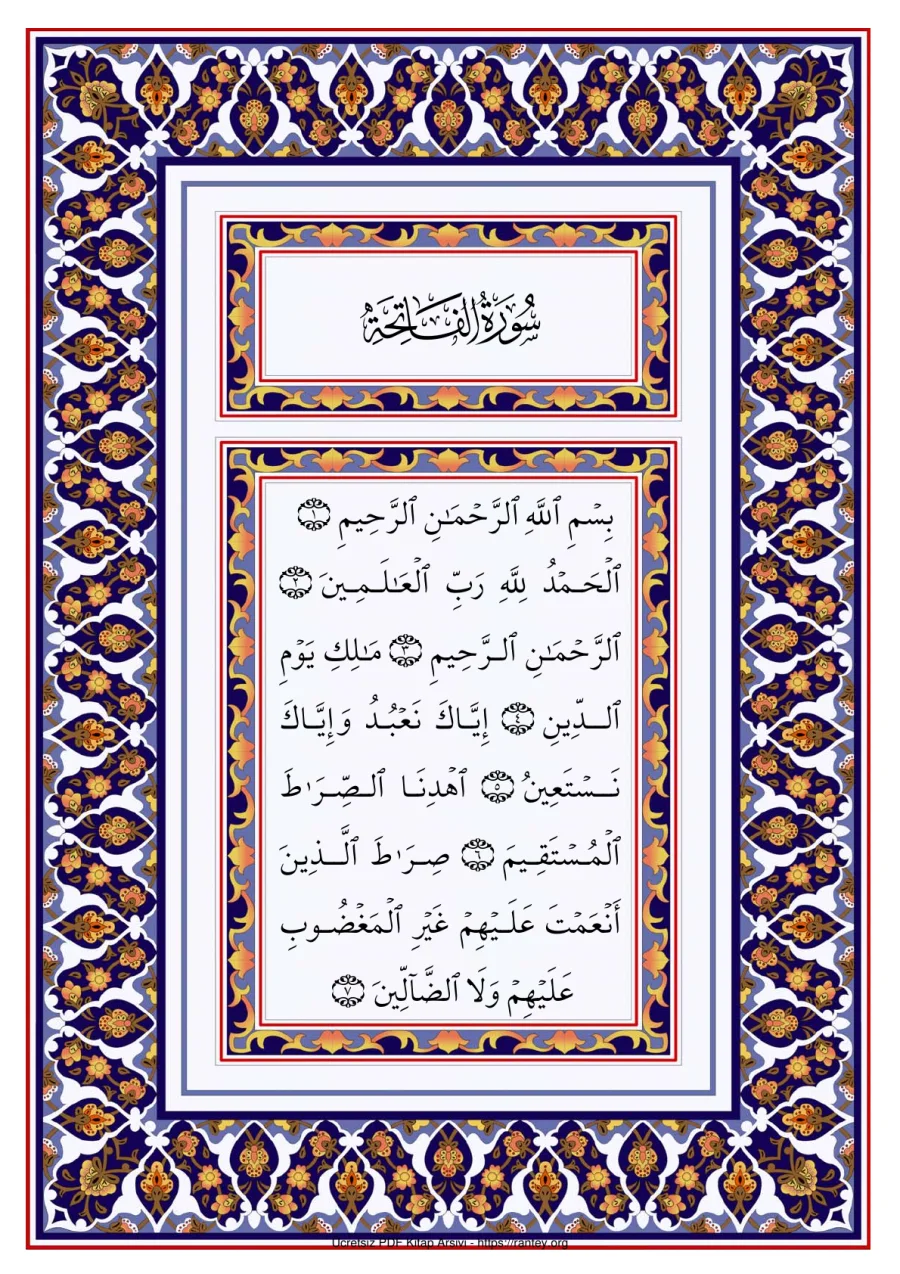 سُورَةُ الفَاتِحَةِ
بِسۡمِ ٱللَّهِ ٱلرَّحۡمَـٰنِ ٱلرَّحِيمِ ١
ٱلۡحَمۡدُ لِلَّهِ رَبِّ ٱلۡعَـٰلَمِينَ ٢
ٱلرَّحۡمَـٰنِ ٱلرَّحِيمِ ٣ مَـٰلِكِ يَوۡمِ
ٱلدِّينِ ٤ إِيَّاكَ نَعۡبُدُ وَإِيَّاكَ
نَسۡتَعِينُ ٥ ٱهۡدِنَا ٱلصِّرَٰطَ
ٱلۡمُسۡتَقِيمَ ٦ صِرَٰطَ ٱلَّذِينَ
أَنۡعَمۡتَ عَلَيۡهِمۡ غَيۡرِ ٱلۡمَغۡضُوبِ
عَلَيۡهِمۡ وَلَا ٱلضَّآلِّينَ ٧
Ücretsiz PDF Kitap Arşivi - https://rantey.org